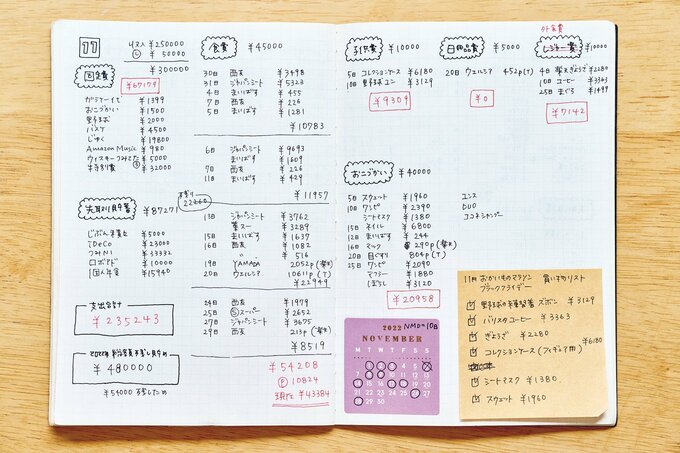 11
収入 ¥250000
¥50000
¥300000
固定費
¥67179
ガラケー代 ¥1399
おこづかい ¥1500
野球部 ¥2000
バスケ ¥4500
じゅく ¥19800
Amazon Music ¥980
¥5000
¥32000
先取り貯蓄 ¥87271
じぶん年金 ¥5000
iDeCo ¥23000
つみNI ¥33332
ロボアド ¥10000
個人年金 ¥15940
支出合計
¥235243
¥480000
食費 ¥45000
30日 西友 ¥3498
31日 ジャパンミート ¥5323
4日 まいばすけ ¥455
7日 西友 ¥226
5日 まいばすけ ¥1281
¥10783
6日 ジャパンミート ¥9693
まいばすけ ¥1609
7日 西友 ¥226
11日 まいばすけ ¥429
¥11957
残り
22260
13日 ジャパンミート ¥3762
業スー ¥3289
15日 まいばすけ ¥1637
16日 西友 ¥1082
〃 ¥516
19日 YAMADA 2052p(楽天)
20日 ウェルシア 10611p(T)
¥22949
24日 西友 ¥1979
25日 スーパー ¥2652
27日 ジャパンミート ¥3675
29日 西友 213p(楽天)
¥8519
¥54208
Ⓟ10824
¥43384
子供費 ¥10000
5日 コレクションケース ¥6180
10日 野球部 ズボン ¥3129
¥9309
日用品費 ¥5000
20日 ウェルシア 452p(T)
¥0
外食費
レジャー費 ¥10000
4日 ぎょうざ ¥2280
10日 コーヒー ¥3363
25日 まぐろ ¥1499
¥7142
おこづかい ¥40000
5日 スウェット ¥1960
10日 ワンピ ¥2390
シートマスク ¥1380
15日 ネイル ¥6800
12日 まいばすけ ¥244
16日 マック 290p(楽天)
20日 目ぐすり 804p(T)
25日 ワンピ ¥2090
マフラー ¥1880
¥3120
¥20958
ユンス
DUO
ココネシャンプー
2022 NMD=10日
NOVEMBER
M T W T F S S
1 2 3 4 5 6
7 8 9 10 11 12 13
14 15 16 17 18 19 20
21 22 23 24 25 26 27
28 29 30
11月 お買いものマラソン 買いものリスト
ブラックフライデー
野球部の卒業製着 ズボン ¥3129
バリスタコーヒー ¥3363
ぎょうざ ¥2280
コレクションケース(フィギュア用) ¥6180
シートマスク ¥1380
スウェット ¥1960